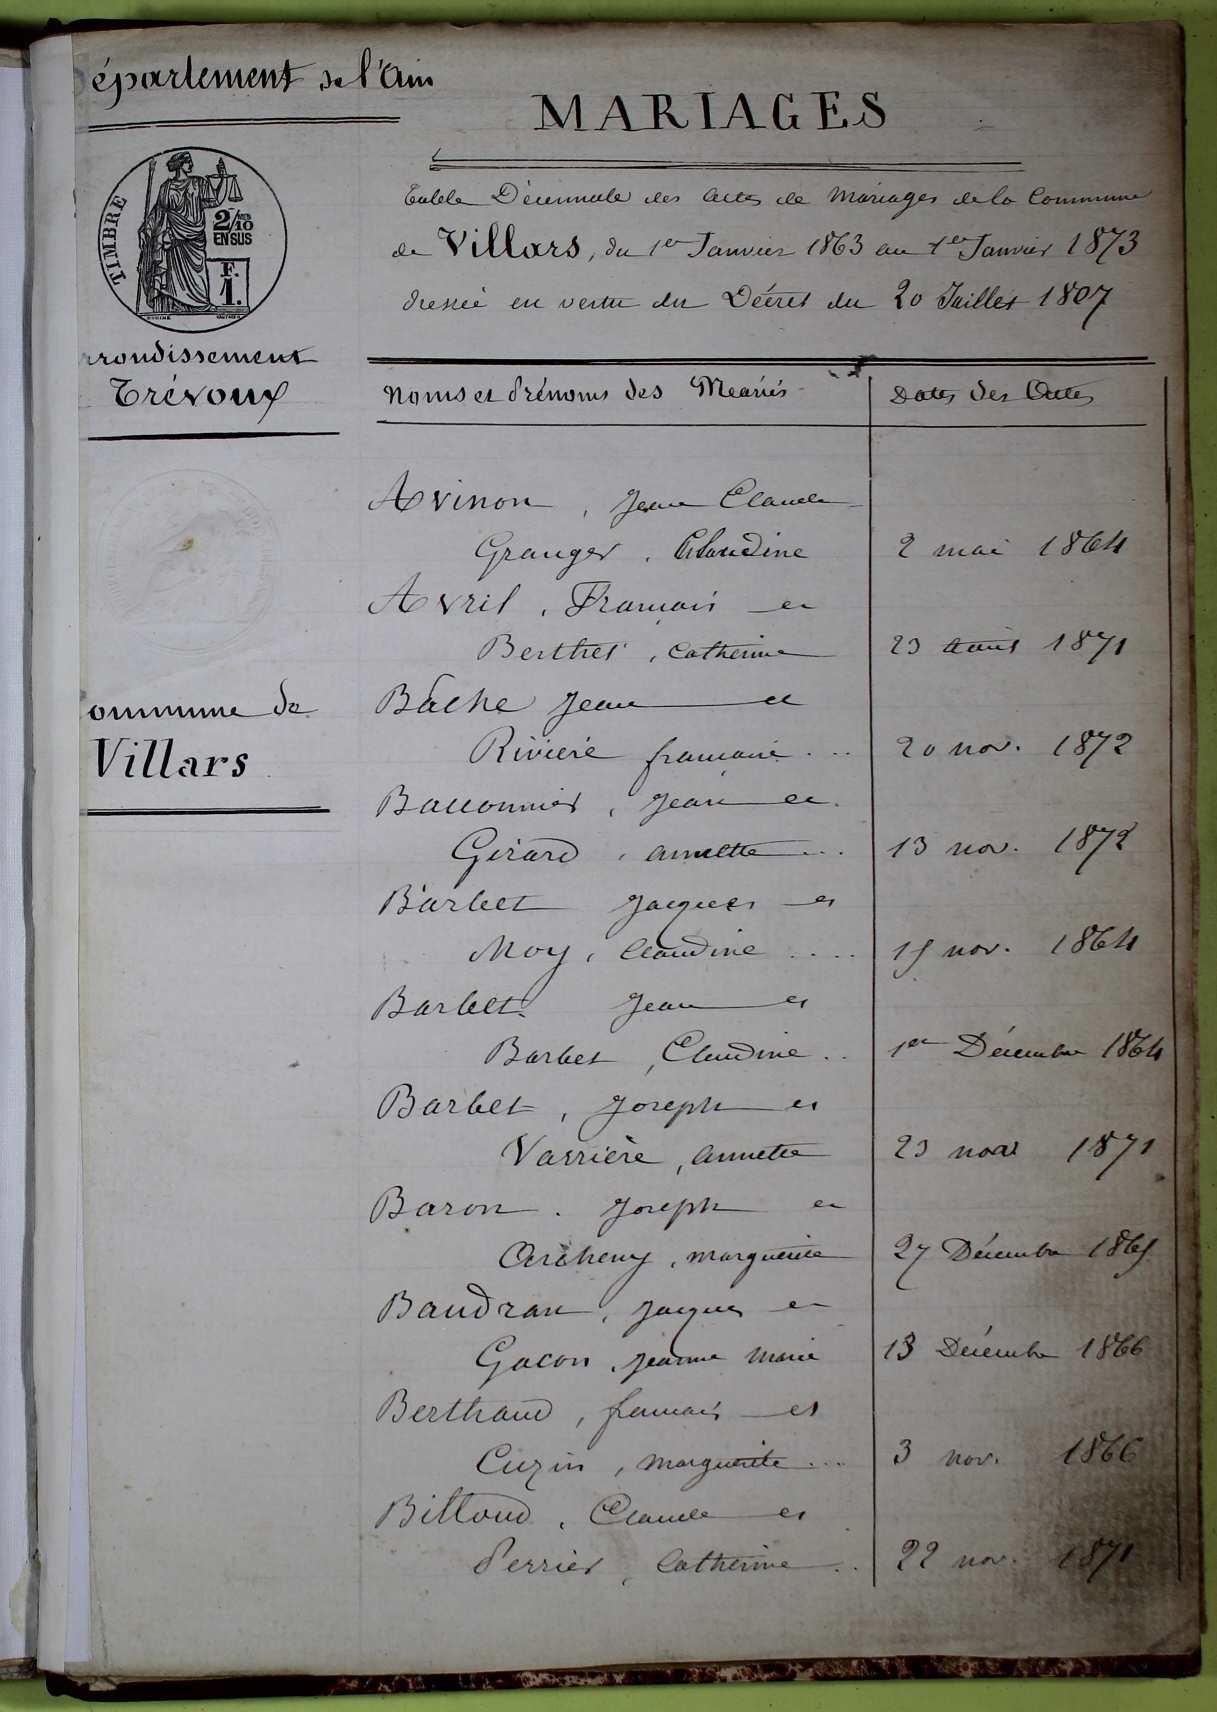 épartement de l'Ain
MARIAGES
TIMBRE
2/10
EN SUS
F.
1.
Table Décennale des Actes de Mariages de la Commune
de Villars, du 1er Janvier 1863 au 1er Janvier 1873
dressée en vertu du Décret du 20 Juillet 1807
rrondissement
Trévoux
ommune de
Villars
Noms et Prénoms des Mariés
Dates des Actes
Avinon, Jean Claude
Granger, Claudine 2 mai 1864
Avril, Francois et
Berthet, Catherine 23 Aout 1871
Bâche Jean et
Riviere francoise ... 20 nov. 1872
Bauonnier, Jean et
Girard, annette ... 13 nov. 1872
Barbet Jacques et
Moy, Claudine .... 15 nov. 1864
Barbet Jean et
Barbet, Claudine .. 1er Décembre 1864
Barbet, Joseph et
Varrière, annette 23 nov 1871
Baron. Joseph et
Archeny, marguerite 27 Décembre 1865
Baudran, Jacques et
Gacon, Jeanne Marie 13 Décembre 1866
Berthaud, francois et
Cuzin, marguerite ... 3 nov. 1866
Billoud, Claude et
Perrier, Catherine .. 22 nov. 1871